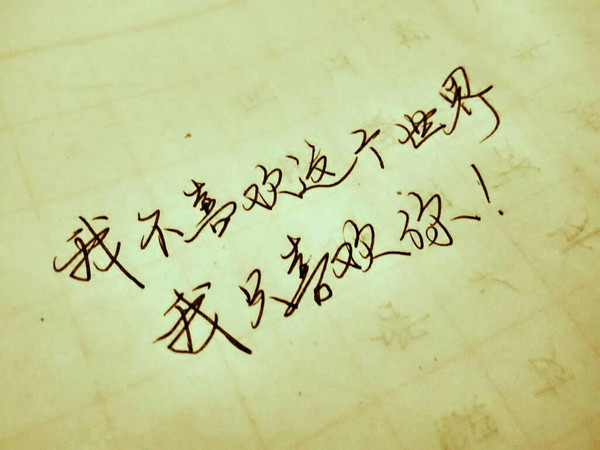 我不喜欢这个世界
我只喜欢你!